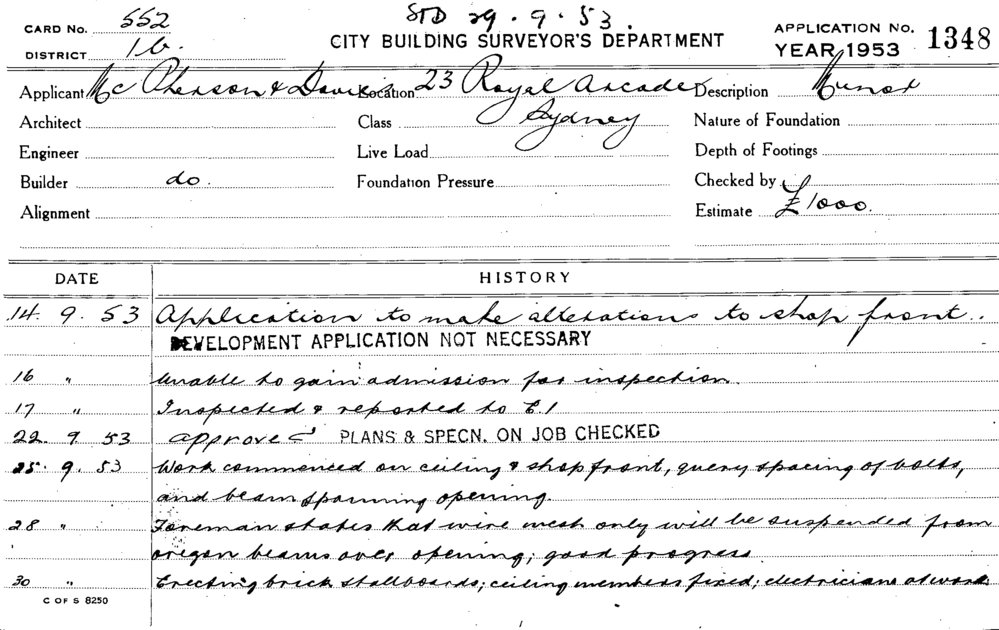 STD 29.9.53.
CARD No. 552
CITY BUILDING SURVEYOR'S DEPARTMENT
APPLICATION No. 1348
YEAR 1953
DISTRICT 1b.
Applicant McPherson & Davies
Location 23 Royal Arcade
Sydney
Description Minor
Architect
Class
Nature of Foundation
Engineer
Live Load
Depth of Footings
Builder do.
Foundation Pressure
Checked by
Alignment
Estimate £1000.
DATE HISTORY
14. 9. 53 Application to make alterations to shop front..
DEVELOPMENT APPLICATION NOT NECESSARY
16 " Unable to gain admission for inspection.
17 " Inspected & reported to E.1
22. 9 53 approved PLANS & SPECN. ON JOB CHECKED
25. 9. 53 Work commenced on ceiling & shop front, query spacing of bolts,
and beam spanning opening.
28 " Foreman states that wire mesh only will be suspended from
oregon beams over opening; good progress
30 " Erecting brick stallboards; ceiling members fixed; electricians at work
C OF S 8250